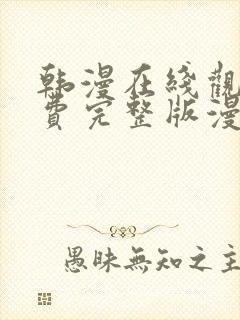 韩漫在线觀
費完整版漫
愚昧無知之主